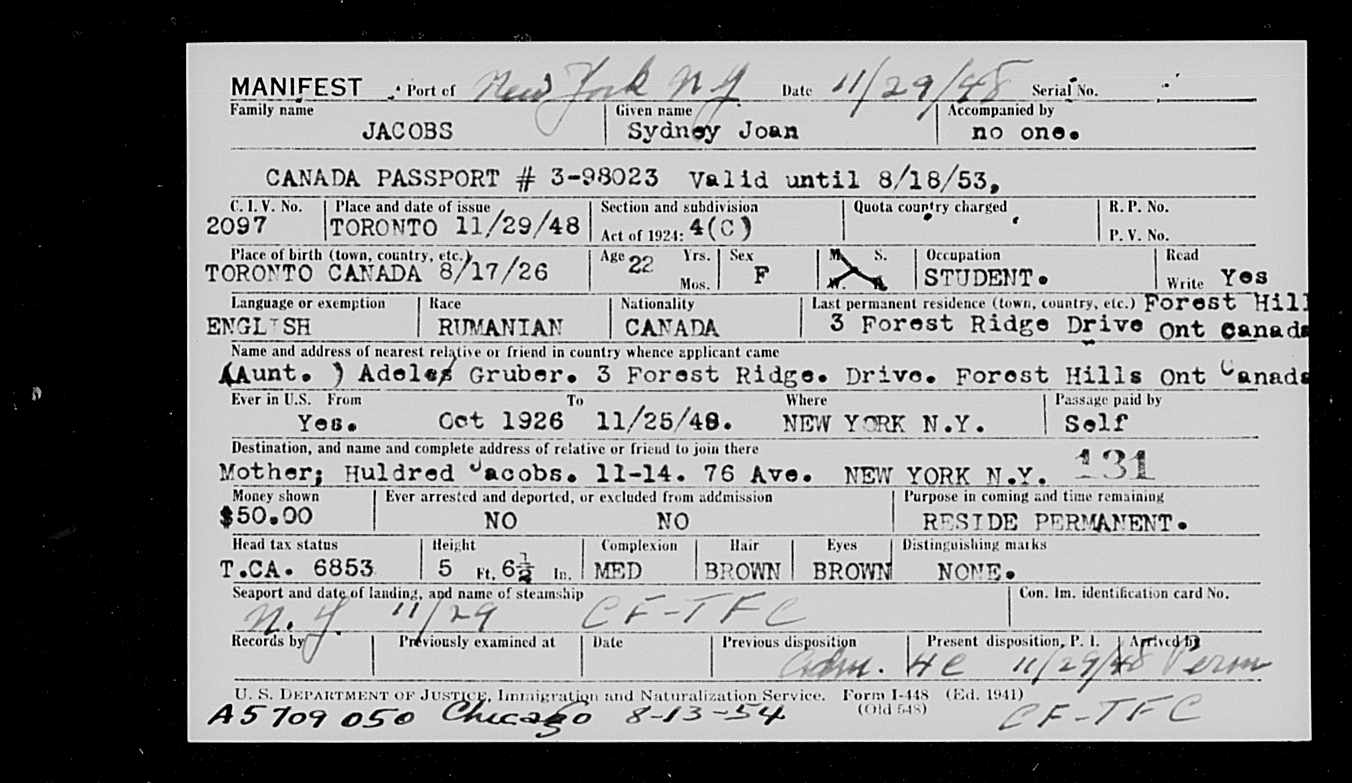 MANIFEST Port of New York N Y Date 11/29/48 Serial No.
Family name Given name Accompanied by
JACOBS Sydney Joan no one.
CANADA PASSPORT # 3-98023 Valid until 8/18/53,
C. I. V. No. Place and date of issue Section and subdivision Quota country charged R. P. No.
2097 TORONTO 11/29/48 Act of 1924: 4(C) P. V. No.
Place of birth (town, country, etc.) Age 22 Yrs. Sex M. S. Occupation Read
TORONTO CANADA 8/17/26 Mos. F W. STUDENT. Write Yes
Language or exemption Race Nationality Last permanent residence (town, country, etc.) Forest Hill
ENGLISH RUMANIAN CANADA 3 Forest Ridge Drive Ont Canada
Name and address of nearest relative or friend in country whence applicant came
(Aunt. ) Adele Gruber. 3 Forest Ridge. Drive. Forest Hills Ont Canada
Ever in U.S. From To Where Passage paid by
Yes. Oct 1926 11/25/48. NEW YORK N.Y. Self
Destination, and name and complete address of relative or friend to join there
Mother; Huldred Jacobs. 11-14. 76 Ave. NEW YORK N.Y. 131
Money shown Ever arrested and deported, or excluded from addmission Purpose in coming and time remaining
$50.00 NO NO RESIDE PERMANENT.
Head tax status Height Complexion Hair Eyes Distinguishing marks
T.CA. 6853 5 Ft. 6½ In. MED BROWN BROWN NONE.
Seaport and date of landing, and name of steamship Con. Im. identification card No.
N. Y. 11/29 CF-TFC
Records by Previously examined at Date Previous disposition Present disposition, P. I. Arrived by
Adm. 4C 11/29/48 Perm
U. S. DEPARTMENT OF JUSTICE, Immigration and Naturalization Service. Form I-448 (Ed. 1941)
(Old 548)
A5709 050 Chicago 8-13-54 CF-TFC